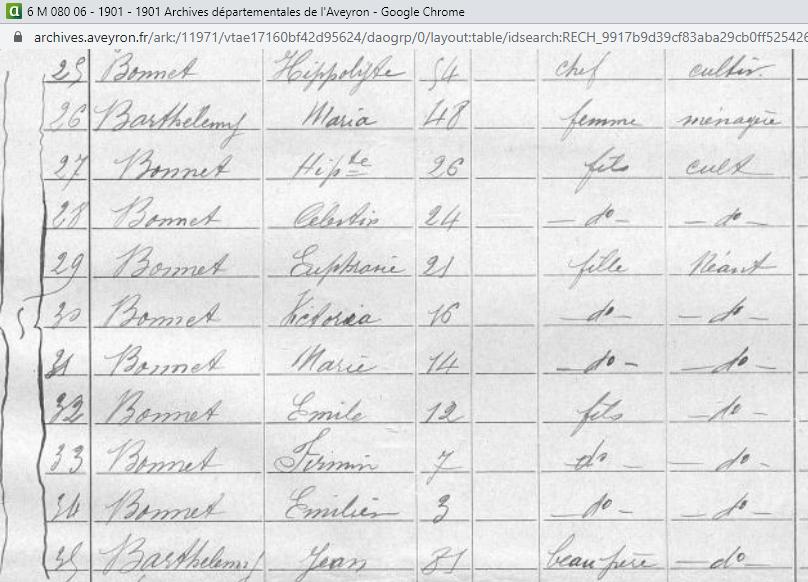 6 M 080 06 - 1901 - 1901 Archives départementales de l'Aveyron - Google Chrome
archives.aveyron.fr/ark:/11971/vtae17160bf42d95624/daogrp/0/layout:table/idsearch:RECH_9917b9d39cf83aba29cb0ff525426
25 Bonnet Hippolyte 54 chef cultiv.
26 Barthelemy Maria 48 femme ménagère
27 Bonnet Hipte 26 fils cult
28 Bonnet Célestin 24 - do - - do -
29 Bonnet Euphrasie 21 fille Néant
5 30 Bonnet Victoria 16 - do - - do -
31 Bonnet Marie 14 - do - - do -
32 Bonnet Emile 12 fils - do -
33 Bonnet Firmin 7 do - - do -
34 Bonnet Emilien 3 - do - - do -
35 Barthelemy Jean 81 beau père - do -